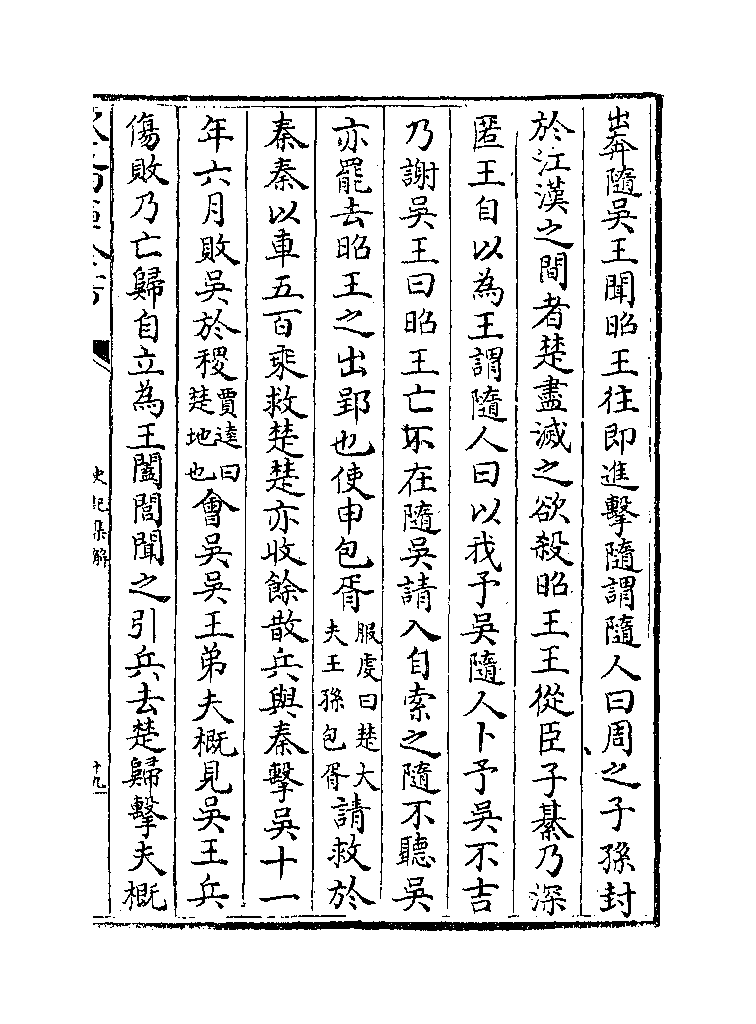 出奔隨吳王聞昭王往即進擊隨謂隨人曰周之子孫封
於江漢之間者楚盡滅之欲殺昭王王從臣子綦乃深
匿王自以為王謂隨人曰以我予吳隨人卜予吳不吉
乃謝吳王曰昭王亡不在隨吳請入自索之隨不聽吳
亦罷去昭王之出郢也使申包胥服虔曰楚大夫王孫包胥請救於
秦秦以車五百乘救楚楚亦收餘散兵與秦擊吳十一
年六月敗吳於稷賈逵曰楚地也會吳吳王弟夫概見吳王兵
傷敗乃亡歸自立為王闔閭聞之引兵去楚歸擊夫概
史記集解
十九